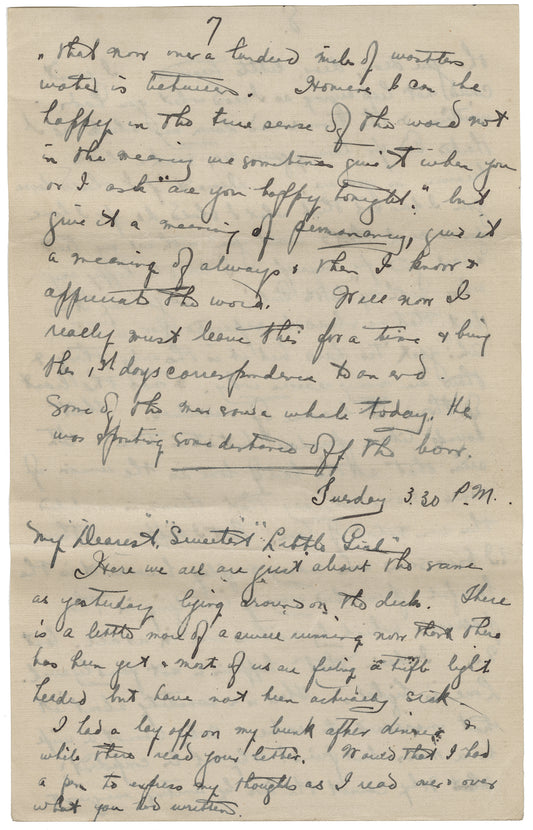 7
that now over a hundred miles of
water is between. I can be
happy in the true sense of the word not
in the meaning we sometimes give it when you
or I ask "are you happy tonight." but
give it a meaning of permanancy, give it
a meaning of always & then I know &
appreciate the word. Well now I
really must leave this for a time & bring
this 1st days correspondence to an end.
Some of the men saw a whale today. He
was spouting some distance off the bow.
Tuesday 3.30 P.M.
My "Dearest", "Sweetest" "Little Girl"
Here we all are just about the same
as yesterday lying around on the deck. There
is a little more of a swell running now than there
has been yet & most of us are feeling a trifle light
headed but have not been actually sick.
I had a lay off on my bunk after dinner &
while there read your letter. Would that I had
a pen to express my thoughts as I read over & over
what you had written.